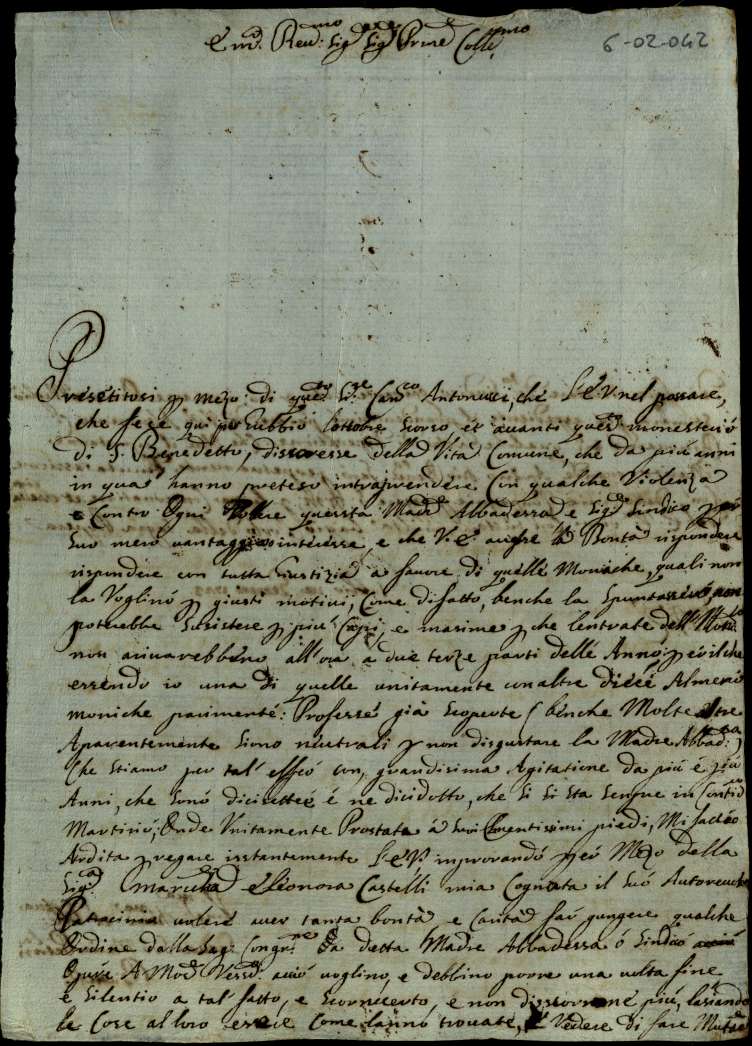 Em.o Reu.mo Sig.r Sig.r Prne Colle.mo
6-02-042
Presétitosi p mezo di questo Sig.re Can.co Antonucci, che l'E.V. nel passare,
che fece qui per Gubbio l'ottobre scorso et auanti questo monesterio
di S. Benedetto, discoresse della Vita Comune, che da piú anni
in qua hanno preteso intraprendere Con qualche Violenza
e Contro Ogni questa Madre Abbadessa e Sig.r Sindico p
suo mero uantaggioso interesse, e che V.E. auesse la Bontá rispondere
rispondere con tutta Giustizia a fauore di quelle Monache, quali non
la Voglino p giusti motiui, Come difatto, benche la non
potrebbe susistere p piú Capi, e masime p che lentrate dell'
non ariuarebbéno all'ora a due terze parti delle Anno, p
essendo io una di quelle unitamente con altre diece Almeno
moniche parimente: Professe giá Scoperte (benche Molte altre
Aparentemente siono neutrali p non disgustare la Madre Abbad:a)
Che stiamo per tal' effeto con grandisima Agitatione da piú e piú
Anni, che sonó dicisette é ne dicidotto, che si si sta sempre in Contino
Martirió, Onde Vnitamente Prostata á suoi Clementissimi piedi, Mi faccio
Ardita p regare instantemente l'E.V. inprorando per Mezo della
Sig.a Eléonora Castelli mia Cognata il suó Autoreuole
Patrocinio uoleré auer tanta bontá e Caritá far giungere qualche
Ordine dalla Sag: Congr.ne a detta Madre Abbadessa ó Sindico
Opure A Mod: Vesc: acció uoglino, e debbino porre una uolta fine
e silentio a tal fatto, e sconcerto, e non discorrone piú, lasiando
le Cose al loro essere Come lanno trouate, Vedere di fare